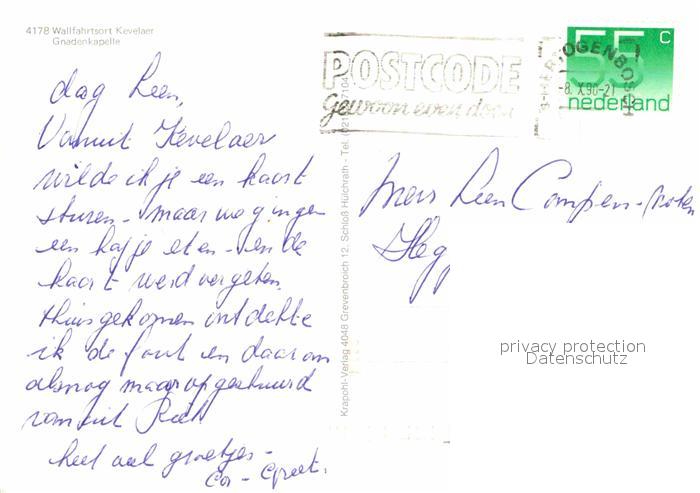 4178 Wallfahrtsort Kevelaer
Gnadenkapelle
dag Leen,
Vanuit Kevelaer
wilde ik je een kaart
sturen - maar we gingen
een hapje eten - en de
kaart werd vergeten.
thuisgekomen ontdekte
ik de fout en daarom
alsnog maar opgestuurd
vanuit
heel veel groetjes -
Cor - Greet.
Krapohl-Verlag 4048 Grevenbroich 12, Schloß Hülchrath - Tel.
POSTCODE
Gewoon even doen
'S-HERTOGENBOSCH
-8.X.90-21
55 c
nederland
Mevr Leen
privacy protection
Datenschutz